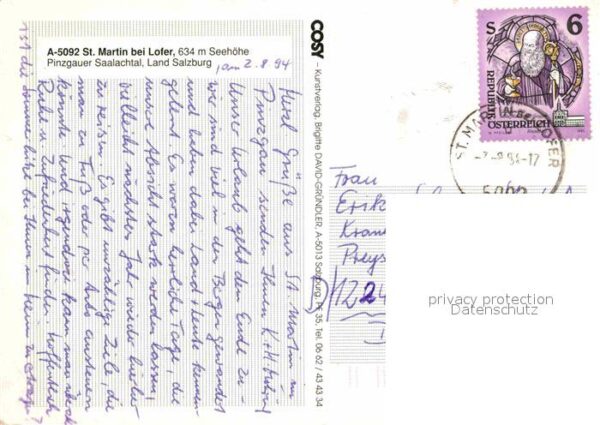 A-5092 St. Martin bei Lofer, 634 m Seehöhe
Pinzgauer Saalachtal, Land Salzburg
am 2.8.94
Herzl. Grüße aus St. Martin im
Pinzgau senden Ihnen K + H
Unser Urlaub geht dem Ende zu -
wir sind viel in den Bergen gewandert
und haben dabei Land + Leute kennen-
gelernt. Es waren herrliche Tage, die
unsere Absicht stark werden lassen,
vielleicht nächstes Jahr wieder hierher
zu reisen. Es gibt unzählige Ziele, die
man zu Fuß oder per Auto ansteuern
könnte und irgendwie kann man überall
Ruhe u. Zufriedenheit finden. Hoffentlich
ist die Sommerhitze bei Ihnen im Heim zu ertragen?
COSY - Kunstverlag, Brigitte DAVID-GRÜNDLER, A-5013 Salzburg, PF 35, Tel. 06 62 / 43 43 34
S 6
REPUBLIK
ÖSTERREICH
ST. MARTIN BEI LOFER
-2.-8.94-17
5092
Frau
Erik
Kran
Preys
1224
privacy protection
Datenschutz